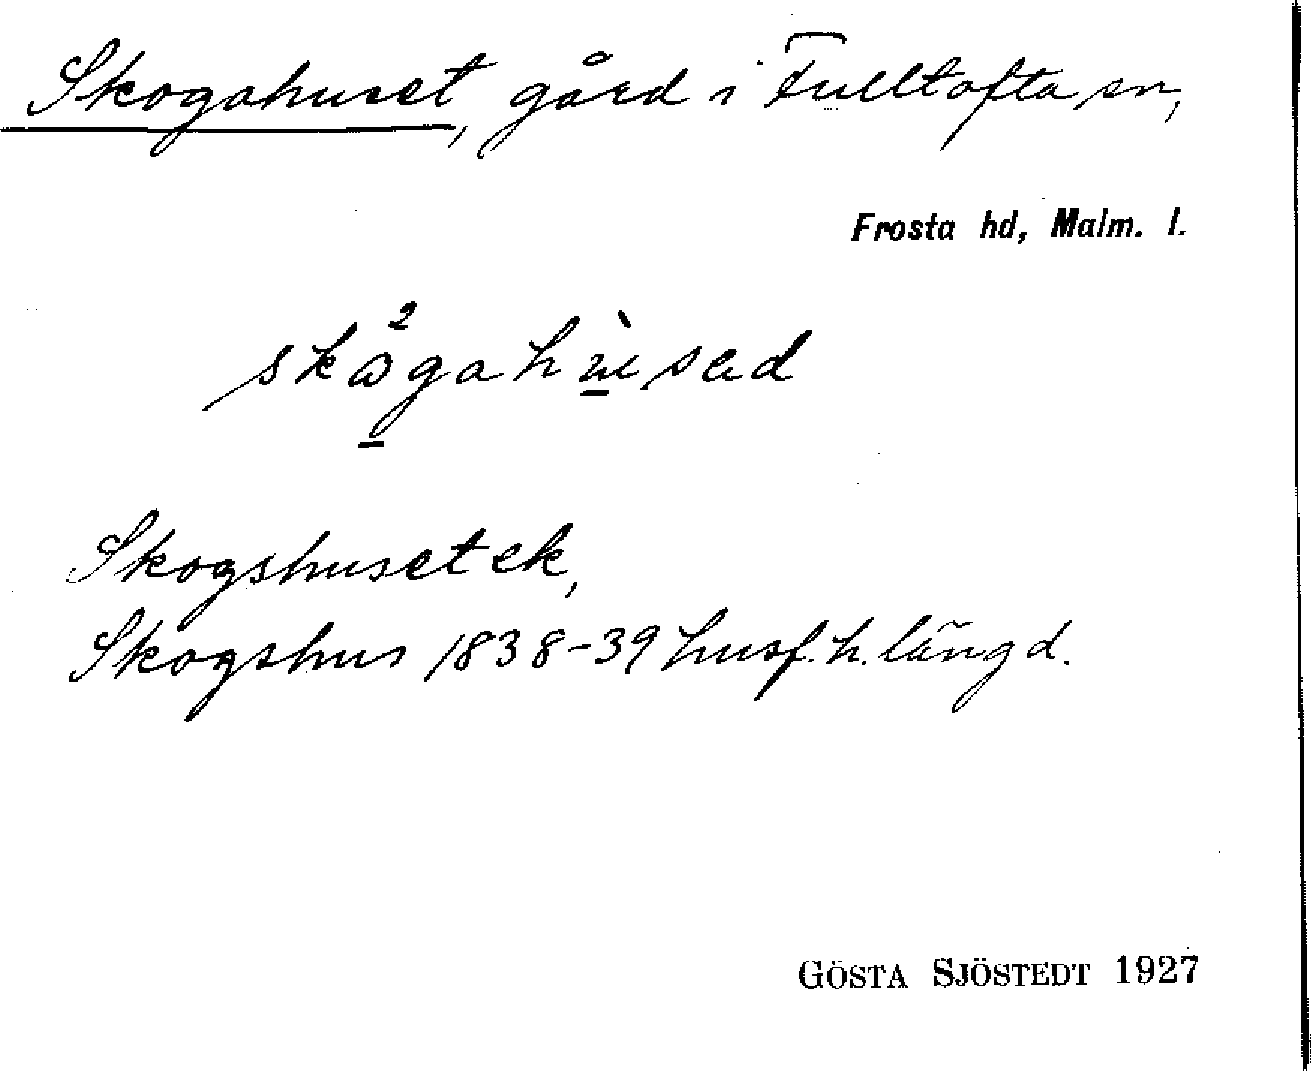 Skogahuset, gård i Fulltofta sn,
Frosta hd, Malm. l.
Skogshuset ek,
Skogshus 1838-39 husf.h.längd.
GÖSTA SJÖSTEDT 1927